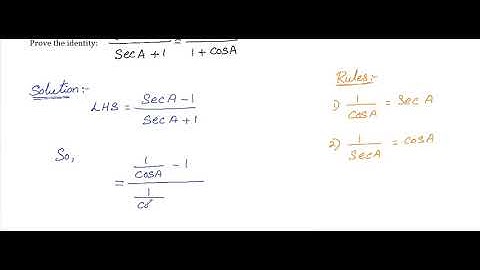 Prove the identity: ───── = ─────
Sec A + 1   1 + COSA
Solution:-
LHS = Sec A - 1 / Sec A + 1
So,
= 1/COSA - 1
1
Rules:-
1) 1/COSA = Sec A
2) 1/Sec A = COSA